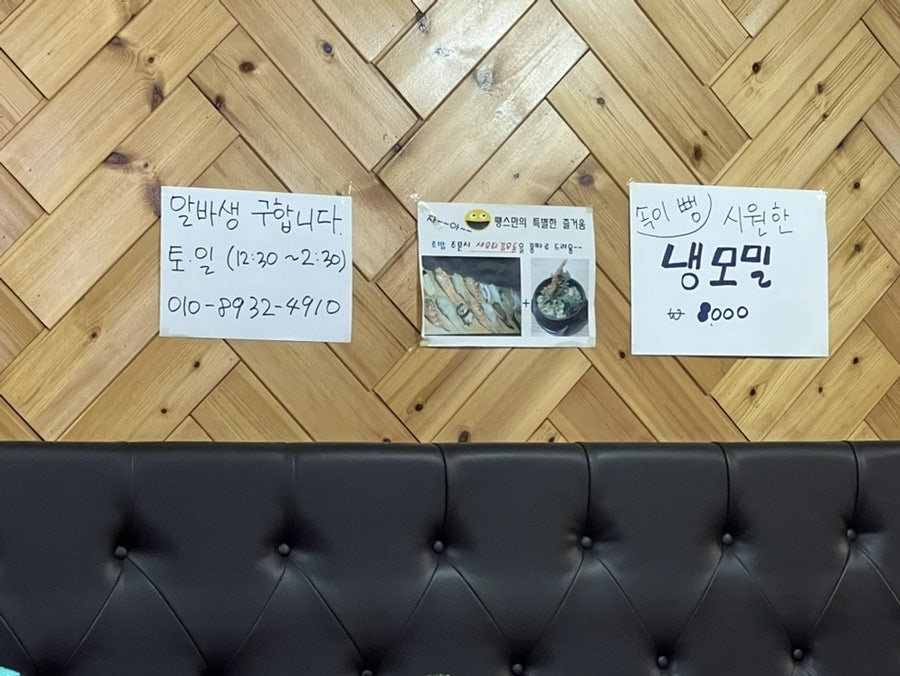 알바생 구합니다.
토.일 (12:30 ~ 2:30)
010-8932-4910
자~~아~~ 땡스만의 특별한 즐거움
초밥 주문시
드려욤~~
+
속이 뻥 시원한
냉모밀
₩ 8,000